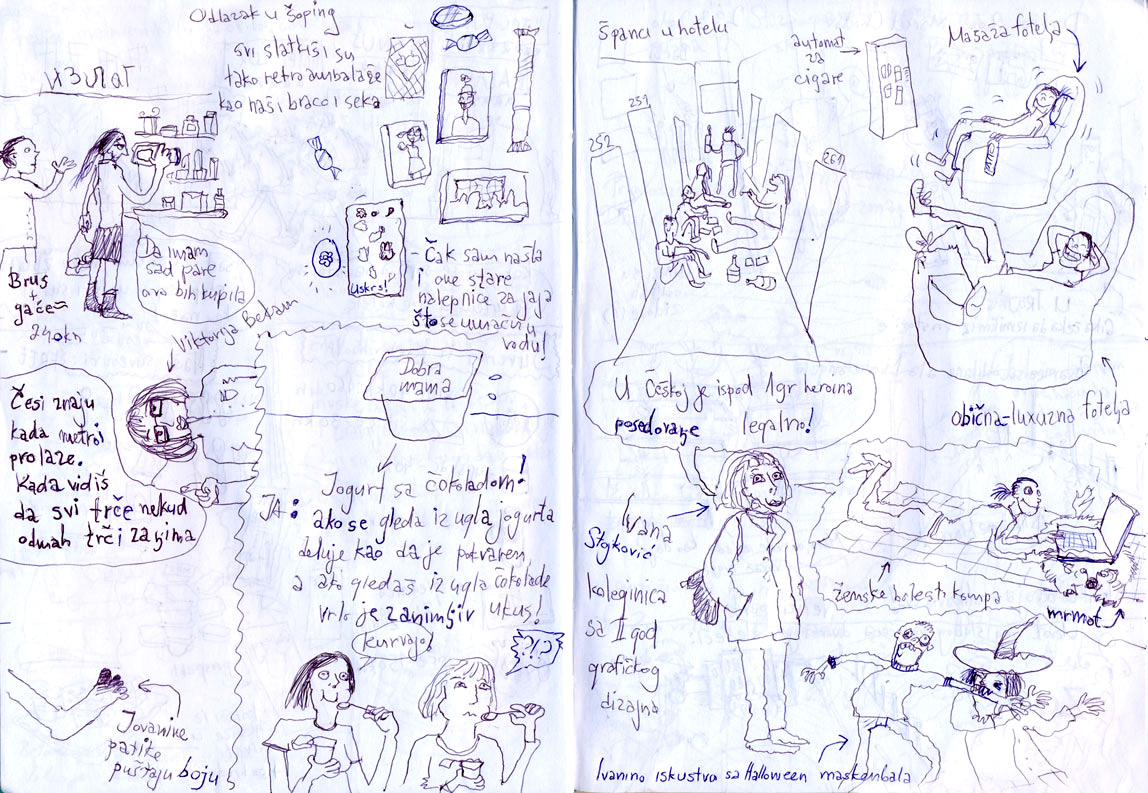 Odlazak u šoping
svi slatkiši su
tako retro ambalaže
kao naši braco i seka
ИЗЛАГ
Da imam
sad pare
ovo bih kupila
Brus
+
gaće =
240kn
Uskrs!
- Čak sam našla
i ove stare
nalepnice za jaja
što se umaču u
vodu!
Viktorija
Češi znaju
kada metroi
prolaze.
Kada vidiš
da svi trče nekud
odmah trči za njima
Dobra
mama
Jogurt sa čokoladom!
JA:
ako se gleda iz ugla jogurta
deluje kao da je pokvaren,
a ako gledaš iz ugla čokolade
vrlo je zanimljiv ukus!
kurvajo!
?!?
Jovanine
patike
puštaju boju
Španci u hotelu
automat
za
cigare
Masaža fotelja
251
252
261
U Češkoj je ispod 1gr heroina
posedovanje legalno!
obična-luxuzna fotelja
Ivana
Stojković
koleginica
sa II god
grafičkog
dizajna
ženske bolesti kampa
mrmot
Ivanino iskustvo sa Halloween maskenbala